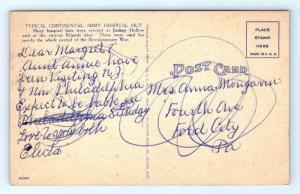 TYPICAL CONTINENTAL ARMY HOSPITAL HUT
Many hospital huts were erected at Jockey Hollow
and at the various Brigade sites. These were used for
nearly the whole period of the Revolutionary War.
Dear Margret
Aunt Annie & have
been visiting N.J.
& Now Philadelphia
Expect to be back in
Philadelphia Sunday
Love to you both
Electa
POST CARD
PLACE
STAMP
HERE
MADE IN U.S.A.
Mrs. Anna Mongoven
Fourth Ave
Ford City
Pa